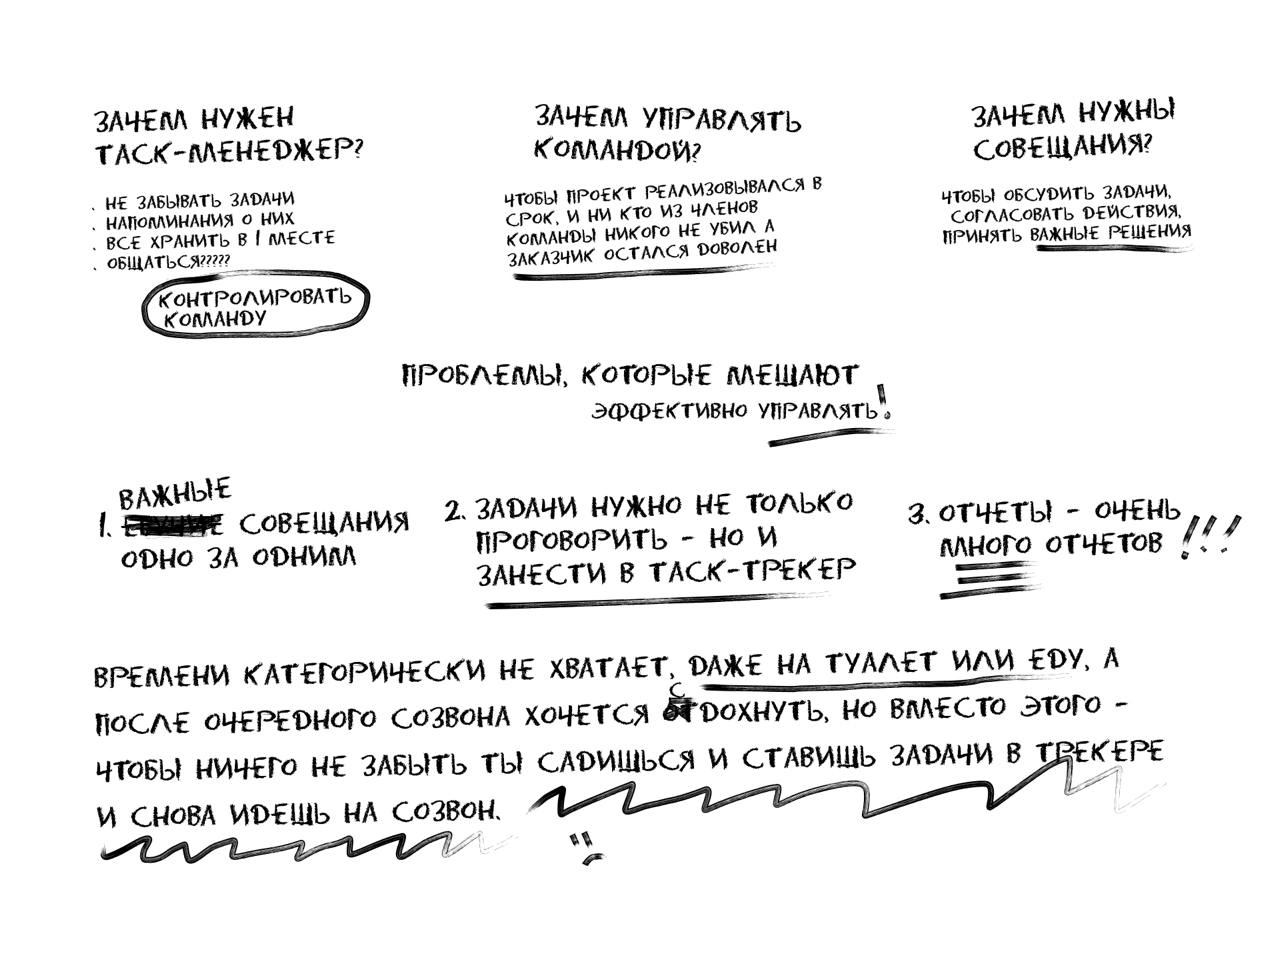 ЗАЧЕМ НУЖЕН
ТАСК-МЕНЕДЖЕР?
. НЕ ЗАБЫВАТЬ ЗАДАЧИ
. НАПОМИНАНИЯ О НИХ
. ВСЕ ХРАНИТЬ В 1 МЕСТЕ
. ОБЩАТЬСЯ?????
КОНТРОЛИРОВАТЬ
КОМАНДУ
ЗАЧЕМ УПРАВЛЯТЬ
КОМАНДОЙ?
ЧТОБЫ ПРОЕКТ РЕАЛИЗОВЫВАЛСЯ В
СРОК, И НИ КТО ИЗ ЧЛЕНОВ
КОМАНДЫ НИКОГО НЕ УБИЛ А
ЗАКАЗЧИК ОСТАЛСЯ ДОВОЛЕН
ЗАЧЕМ НУЖНЫ
СОВЕЩАНИЯ?
ЧТОБЫ ОБСУДИТЬ ЗАДАЧИ,
СОГЛАСОВАТЬ ДЕЙСТВИЯ,
ПРИНЯТЬ ВАЖНЫЕ РЕШЕНИЯ
ПРОБЛЕМЫ, КОТОРЫЕ МЕШАЮТ
ЭФФЕКТИВНО УПРАВЛЯТЬ!
ВАЖНЫЕ
1. СОВЕЩАНИЯ
ОДНО ЗА ОДНИМ
2. ЗАДАЧИ НУЖНО НЕ ТОЛЬКО
ПРОГОВОРИТЬ - НО И
ЗАНЕСТИ В ТАСК-ТРЕКЕР
3. ОТЧЕТЫ - ОЧЕНЬ
МНОГО ОТЧЕТОВ !!!
ВРЕМЕНИ КАТЕГОРИЧЕСКИ НЕ ХВАТАЕТ, ДАЖЕ НА ТУАЛЕТ ИЛИ ЕДУ, А
ПОСЛЕ ОЧЕРЕДНОГО СОЗВОНА ХОЧЕТСЯ СДОХНУТЬ, НО ВМЕСТО ЭТОГО -
ЧТОБЫ НИЧЕГО НЕ ЗАБЫТЬ ТЫ САДИШЬСЯ И СТАВИШЬ ЗАДАЧИ В ТРЕКЕРЕ
И СНОВА ИДЕШЬ НА СОЗВОН.